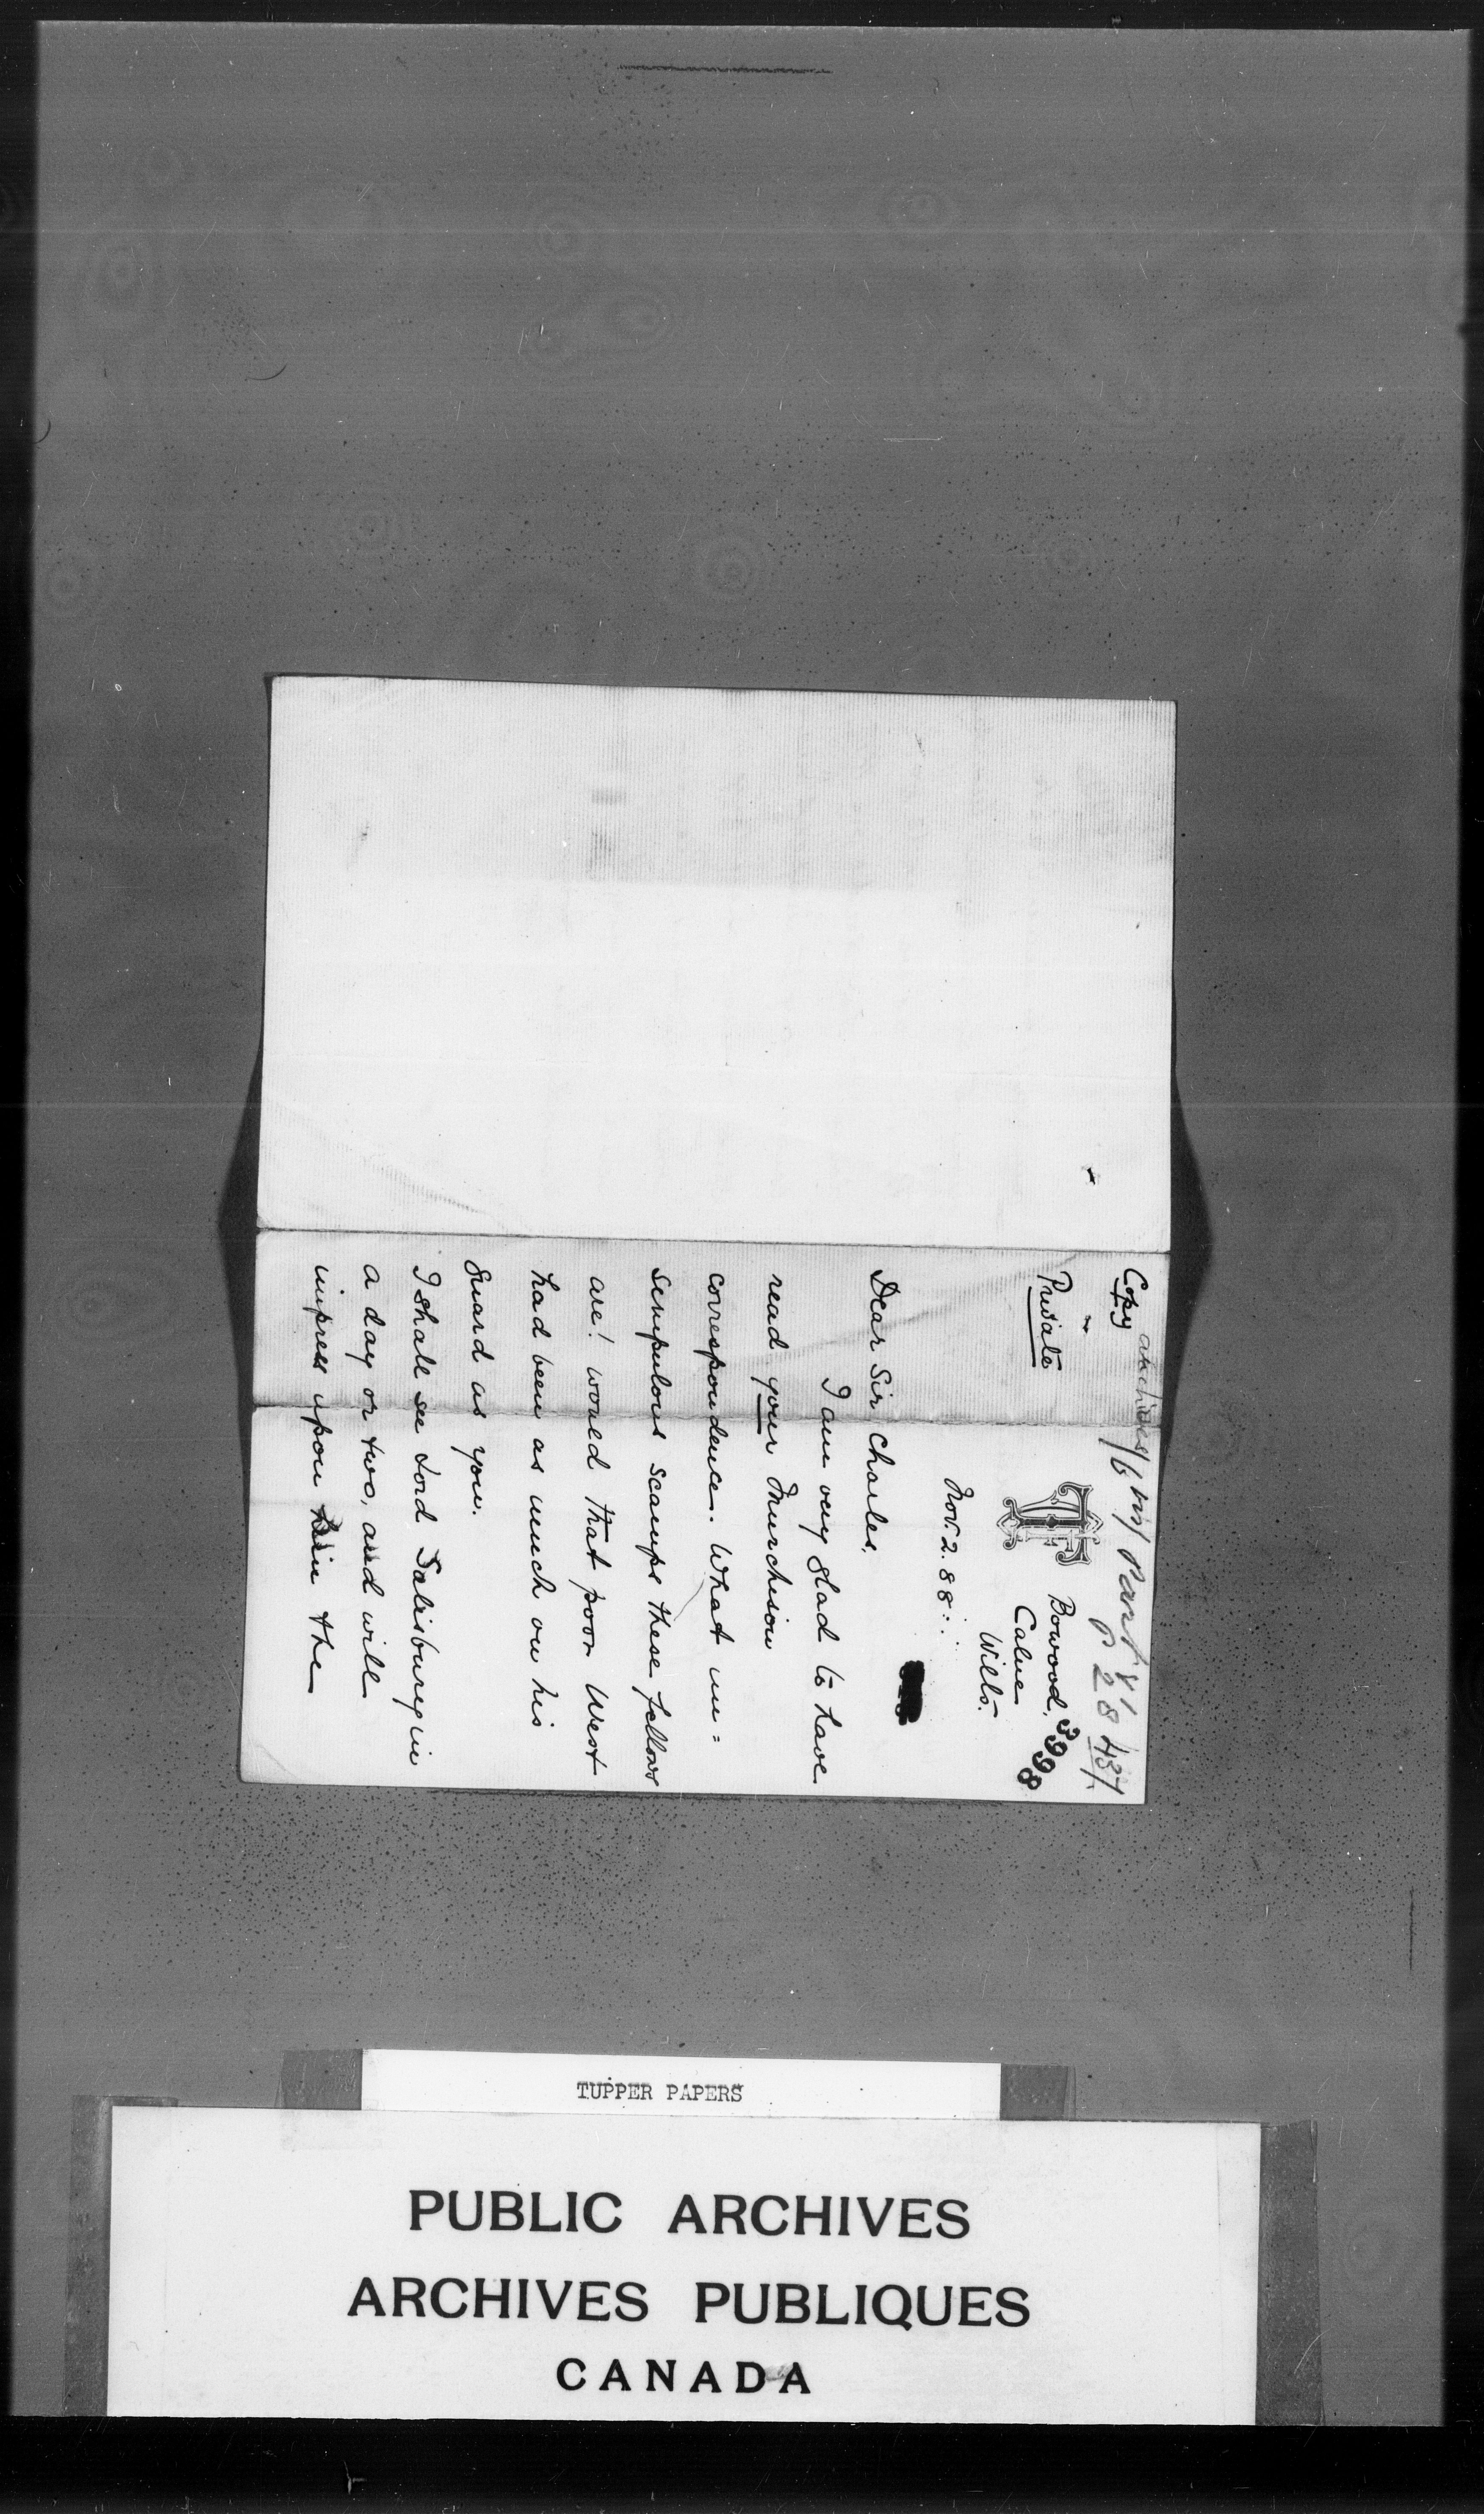 Copy archives / 6 vii / Part
P 28 437
Private
Bowood,
3998
Calne
Wilts.
Nov. 2. 88.
Dear Sir Charles,
I am very glad to have
read your Murchison
correspondence. What un=
scrupulous scamps these fellows
are! would that poor West
had been as much on his
guard as you.
I shall see Lord Salisbury in
a day or two, and will
impress upon him the
TUPPER PAPERS
PUBLIC ARCHIVES
ARCHIVES PUBLIQUES
CANADA